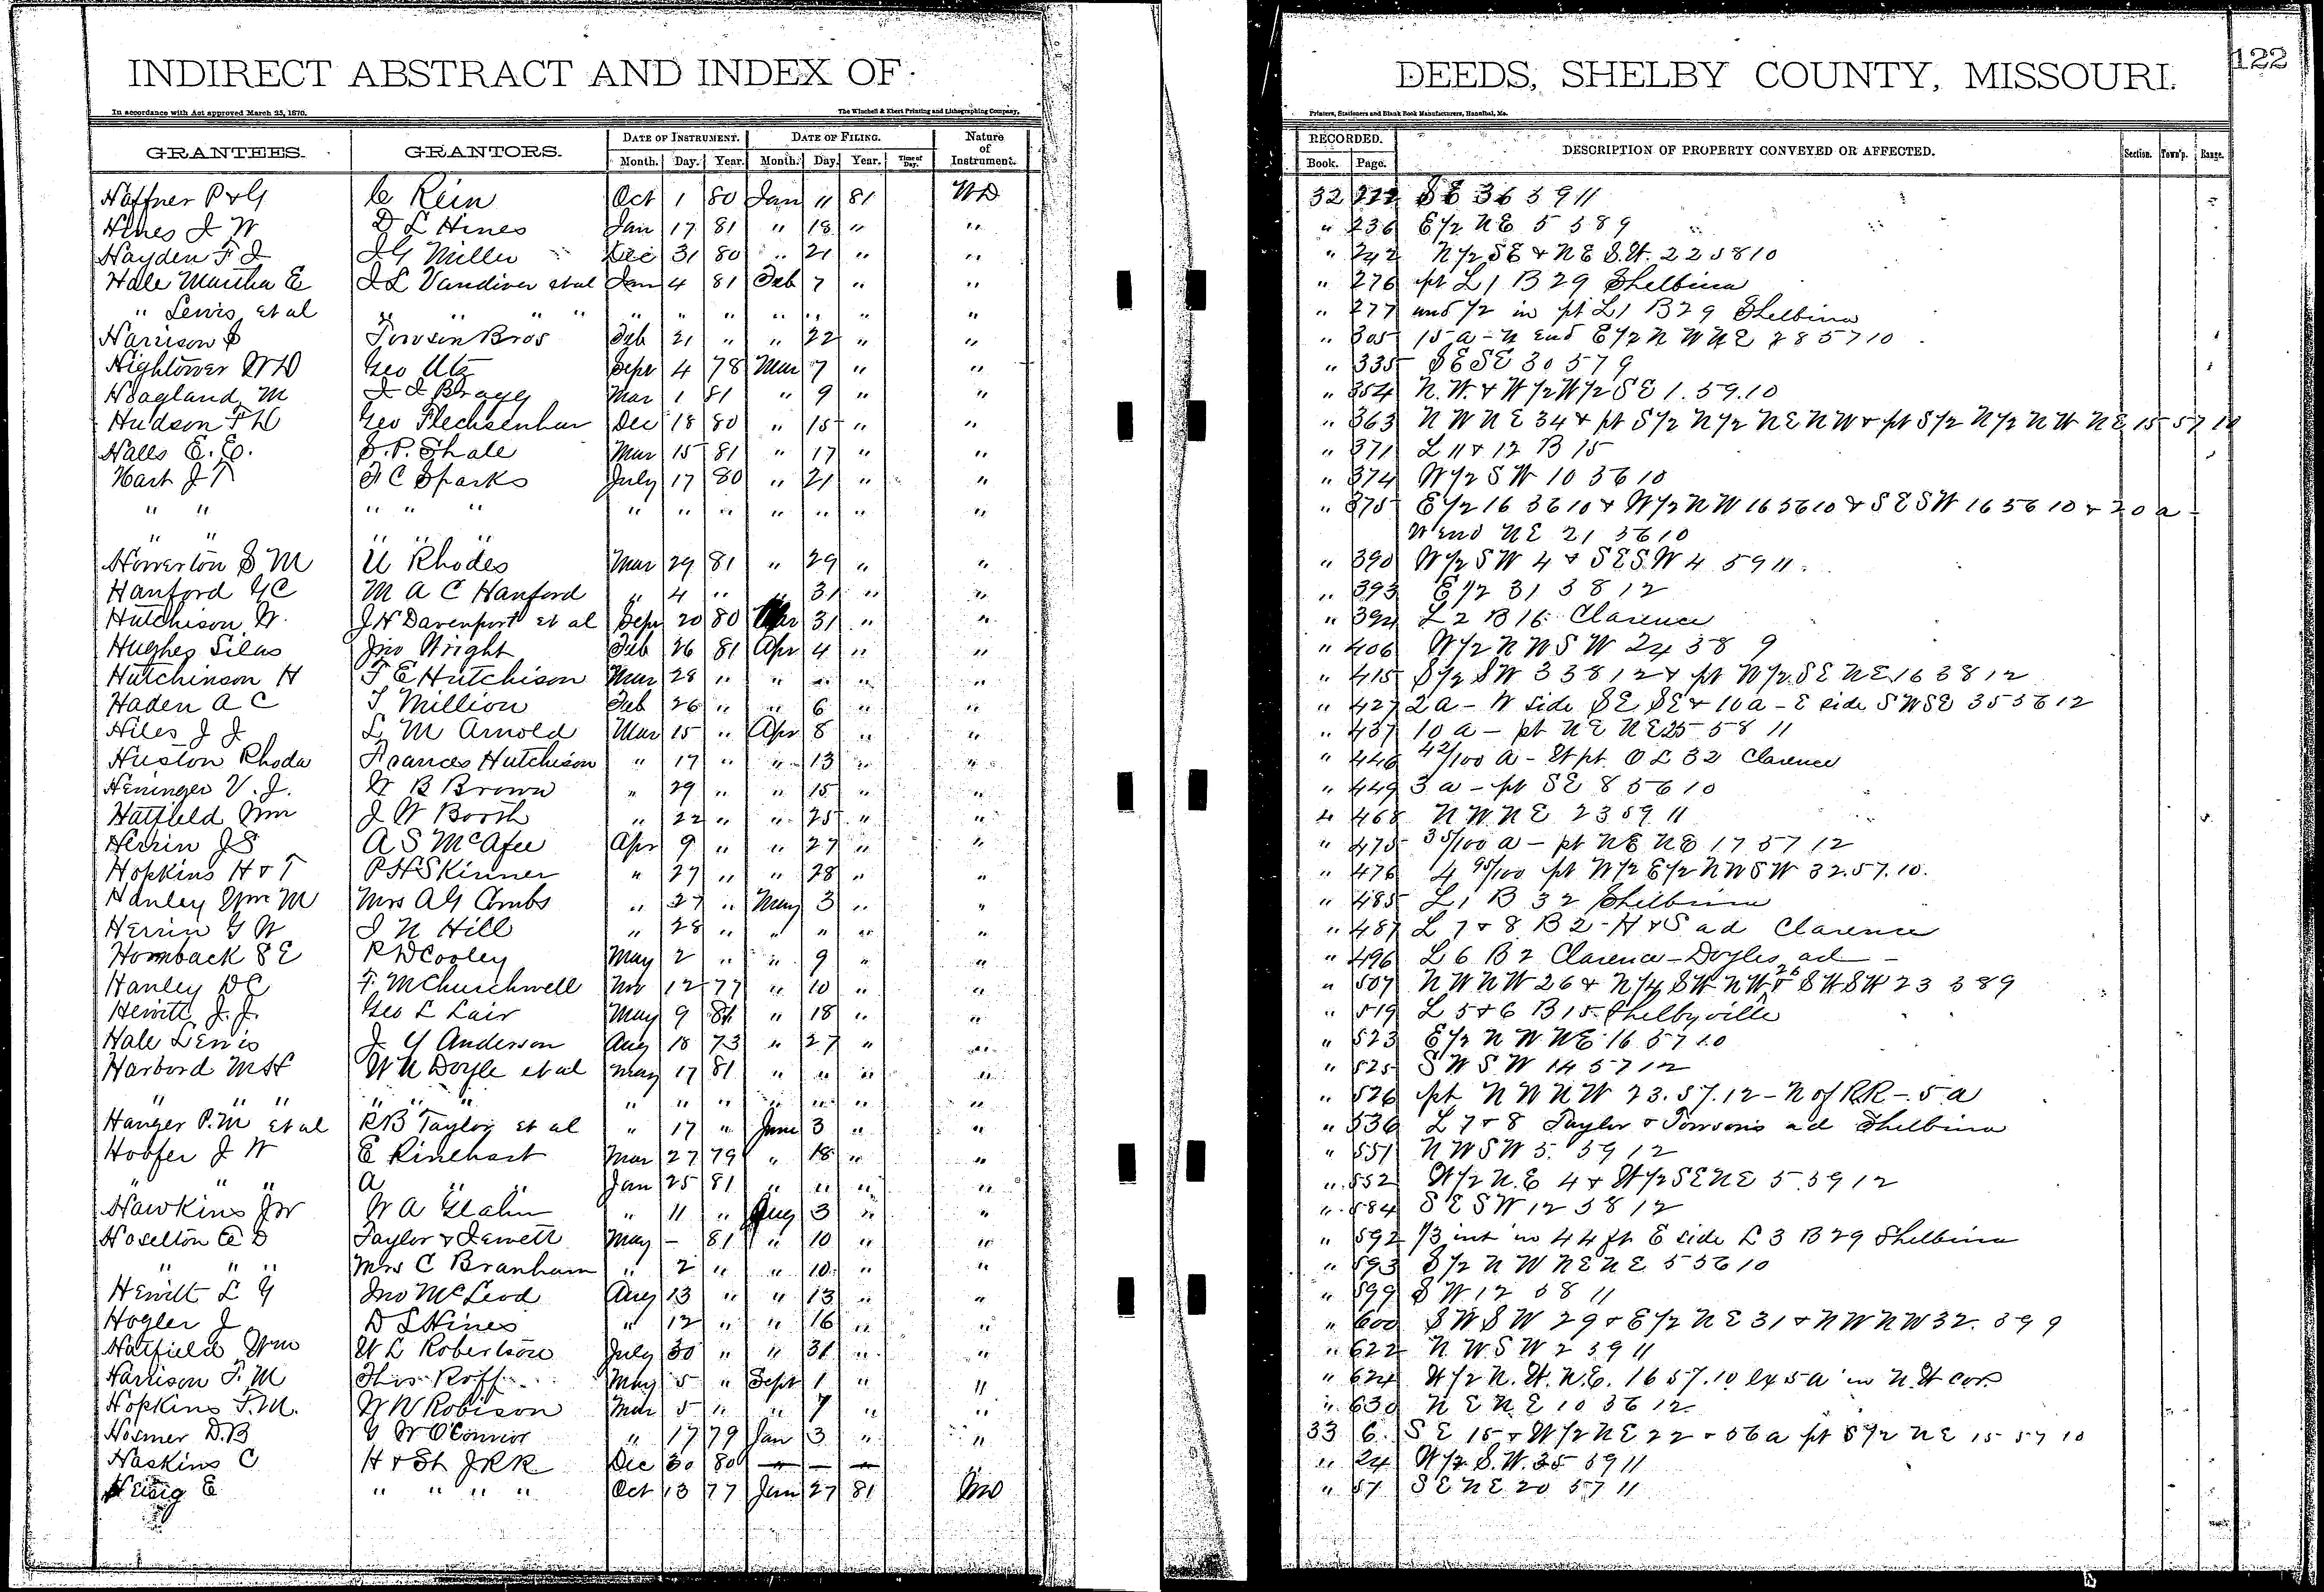 INDIRECT ABSTRACT AND INDEX OF
DEEDS, SHELBY COUNTY, MISSOURI.
122
In accordance with Act approved March 25, 1870.
The Winchell & Ebert Printing and Lithographing Company,
Printers, Stationers and Blank Book Manufacturers, Hannibal, Mo.
GRANTEES. GRANTORS. DATE OF INSTRUMENT. DATE OF FILING. Nature of Instrument. RECORDED. DESCRIPTION OF PROPERTY CONVEYED OR AFFECTED. Section. Town'p. Range.
Month. Day. Year. Month. Day. Year. Time of Day. Book. Page.
Haffner P & G C Rein Oct 1 80 Jan 11 81 WD 32 222 SE 36 59 11
Hines J W D L Hines Jan 17 81 " 18 " " " 236 E 1/2 NE 5 58 9
Hayden F J J G Miller Dec 31 80 " 21 " " " 242 N 1/2 SE & NE S.W. 22 58 10
Hale Martha E J L Vandiver et al Jan 4 81 Feb 7 " " " 276 pt L 1 B 29 Shelbina
" Lewis et al " " " " " " " " " " " " 277 und 1/2 in pt L 1 B 29 Shelbina
Harrison S Towson Bros Feb 21 " " 22 " " " 305 15 a - N end E 1/2 N W N E 28 57 10
Hightower W D Geo Utz Sept 4 78 Mar 7 " " " 335 SE SE 30 57 9
Hoagland M J J Bragg Mar 1 81 " 9 " " " 354 N.W. & W 1/2 W 1/2 SE 1. 59. 10
Hudson F D Geo Flechsenhar Dec 18 80 " 15 " " " 363 N W N E 34 & pt S 1/2 N 1/2 N E N W & pt S 1/2 N 1/2 N W N E 15 57 10
Halls E. E. S. P. Shale Mar 15 81 " 17 " " " 371 L 11 & 12 B 15
Hart J T F C Sparks July 17 80 " 21 " " " 374 W 1/2 S W 10 56 10
" " " " " " " " " " " " " 375 E 1/2 16 56 10 & W 1/2 N W 16 56 10 & S E S W 16 56 10 & 20 a -
" " " " " W end N E 21 56 10
Howerton S M U Rhodes Mar 29 81 " 29 " " " 390 W 1/2 S W 4 & S E S W 4 59 11
Hanford G C M A C Hanford " 4 " " 31 " " " 393 E 1/2 31 58 12
Hutchison W. J H Davenport et al Sept 20 80 Mar 31 " " " 394 L 2 B 16 Clarence
Hughes Silas Jno Wright Feb 26 81 Apr 4 " " " 406 W 1/2 N W S W 24 58 9
Hutchinson H F E Hutchison Mar 28 " " " " " " 415 S 1/2 SW 3 58 12 & pt N 1/2 S E N E 16 58 12
Haden A C T Million Feb 26 " " 6 " " " 427 2 a - W side SE SE & 10 a - E side S W S E 35 56 12
Hiles J J L M Arnold Mar 15 " Apr 8 " " " 437 10 a - pt N E N E 25 58 11
Huston Rhoda Frances Hutchison " 17 " " 13 " " " 446 42/100 a - W pt. O L 32 Clarence
Heninger V. J. W B Brown " 29 " " 15 " " " 449 3 a - pt SE 8 56 10
Hatfield Wm J W Booth " 22 " " 25 " " " 468 N W N E 23 59 11
Herrin J S A S McAfee Apr 9 " " 27 " " " 475 35/100 a - pt NE NE 17 57 12
Hopkins H & T P H Skinner " 27 " " 28 " " " 476 4 95/100 pt W 1/2 E 1/2 N W S W 32. 57. 10.
Hanley Wm M Mrs A G Combs " 27 " May 3 " " " 485 L 1 B 32 Shelbina
Herrin G W J N Hill " 28 " " " " " " 487 L 7 & 8 B 2 - H & S ad Clarence
Hornback S E R D Cooley May 2 " " 9 " " " 496 L 6 B 2 Clarence - Doyles ad -
Hanley D C F. M Churchwell Nov 12 77 " 10 " " " 507 N W N W 26 & N 1/4 S W N W 26 & S W S W 23 58 9
Hewitt J. J. Geo L Lair May 9 81 " 18 " " " 519 L 5 & 6 B 15 Shelbyville
Hale Lewis J Y Anderson Aug 18 73 " 27 " " " 523 E 1/2 N W NE 16 57 10
Harbord M H W N Doyle et al May 17 81 " " " " " 525 S W S W 14 57 12
" " " " " " " " " " " " " " 526 pt N W N W 23. 57. 12 - N of R R - 5 a
Hanger P. M et al R B Taylor et al " 17 " June 3 " " " 536 L 7 & 8 Taylor & Towson's ad Shelbina
Hoofer J W E Rinehart Mar 27 79 " 18 " " " 551 N W S W 5. 59 12
" " " A " " Jan 25 81 " " " " " 552 W 1/2 N. E 4 & W 1/2 S E N E 5 59 12
Hawkins J W W A Glahn " 11 " Aug 3 " " " 584 S E S W 12 58 12
Hoselton C D Taylor & Jewett May - 81 " 10 " " " 592 1/3 int in 44 ft E side L 3 B 29 Shelbina
" " " Mrs C Branham " 2 " " 10 " " " 593 S 1/2 N W N E N E 5 56 10
Hewitt L G Jno McLeod Aug 13 " " 13 " " " 599 S W 12 58 11
Hogler J D L Hines " 12 " " 16 " " " 600 S W S W 29 & E 1/2 N E 31 & N W N W 32. 59 9
Hatfield Wm W L Robertson July 30 " " 31 " " " 622 N W S W 2 59 11
Harrison F. M Thos Roff May 5 " Sept 1 " " " 624 W 1/2 N. W. N. E. 16 57. 10 ex 5 a in N. W cor
Hopkins F. M. W W Robison Mar 5 " " 7 " " " 630 N E N E 10 56 12
Hosmer D. B G W O'Connor " 17 79 Jan 3 " " 33 6 S E 15 & W 1/2 N E 22 & 56 a pt S 1/2 N E 15 57 10
Haskins C H & St J R R Dec 30 80 - - - " " 24 W 1/2 S. W. 35 59 11
Heisig E " " " " Oct 13 77 Jun 27 81 " 57 S E N E 20 57 11